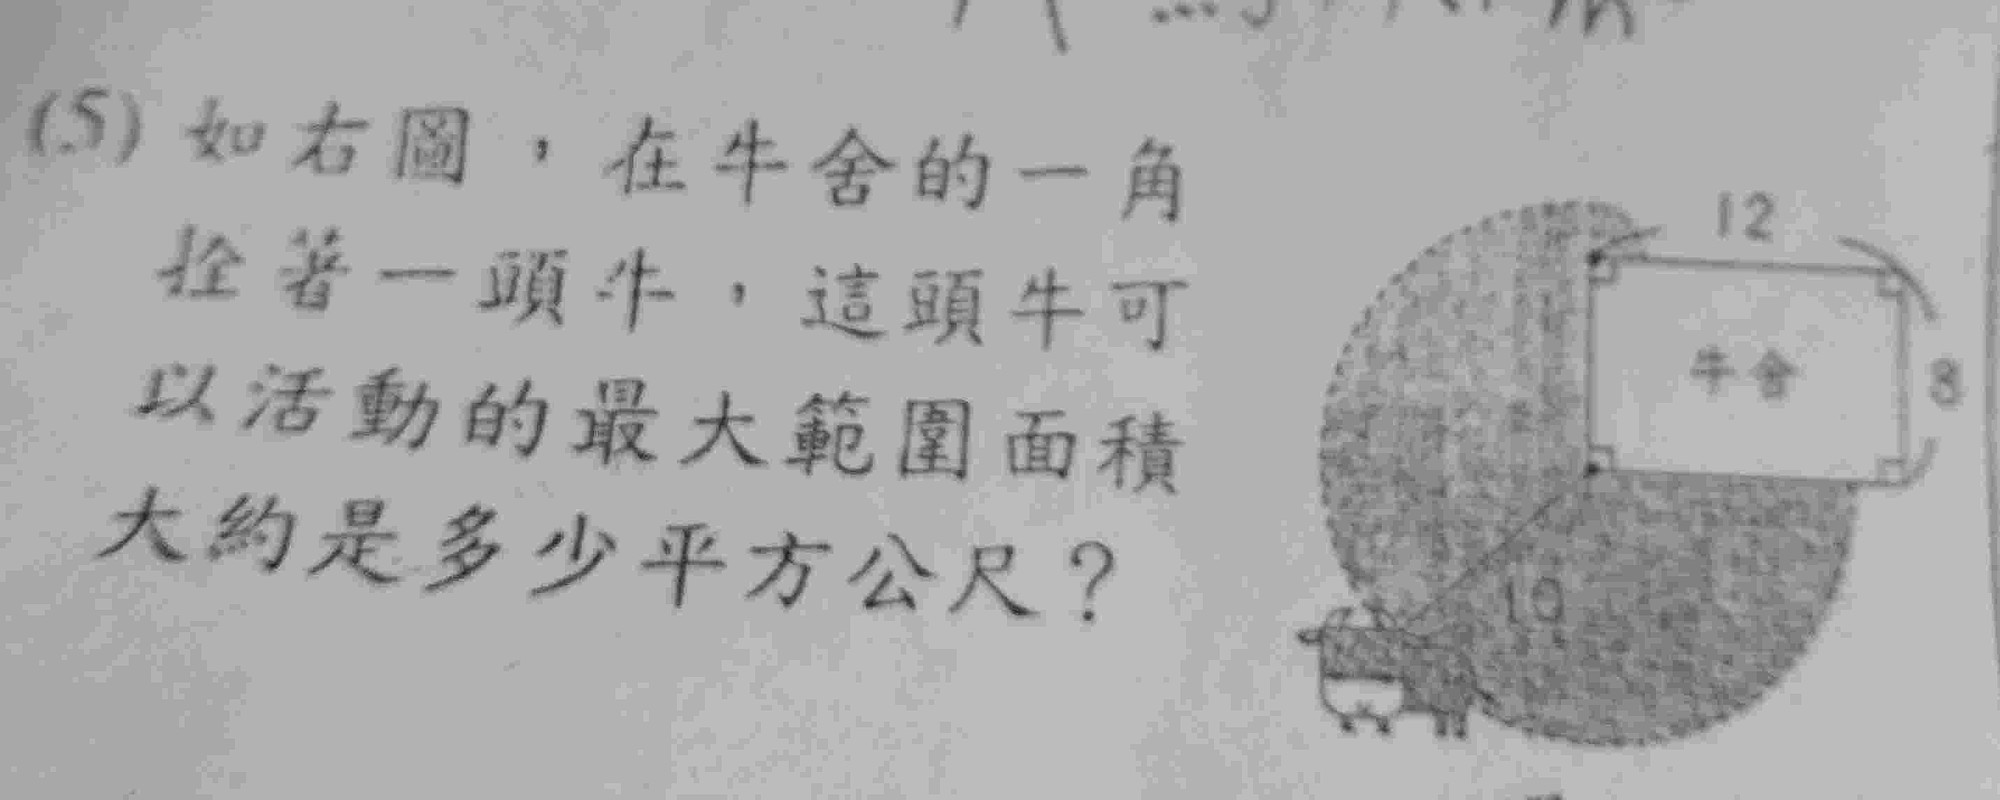 (5) 如右圖，在牛舍的一角
拴著一頭牛，這頭牛可
以活動的最大範圍面積
大約是多少平方公尺？
12
牛舍
8
10